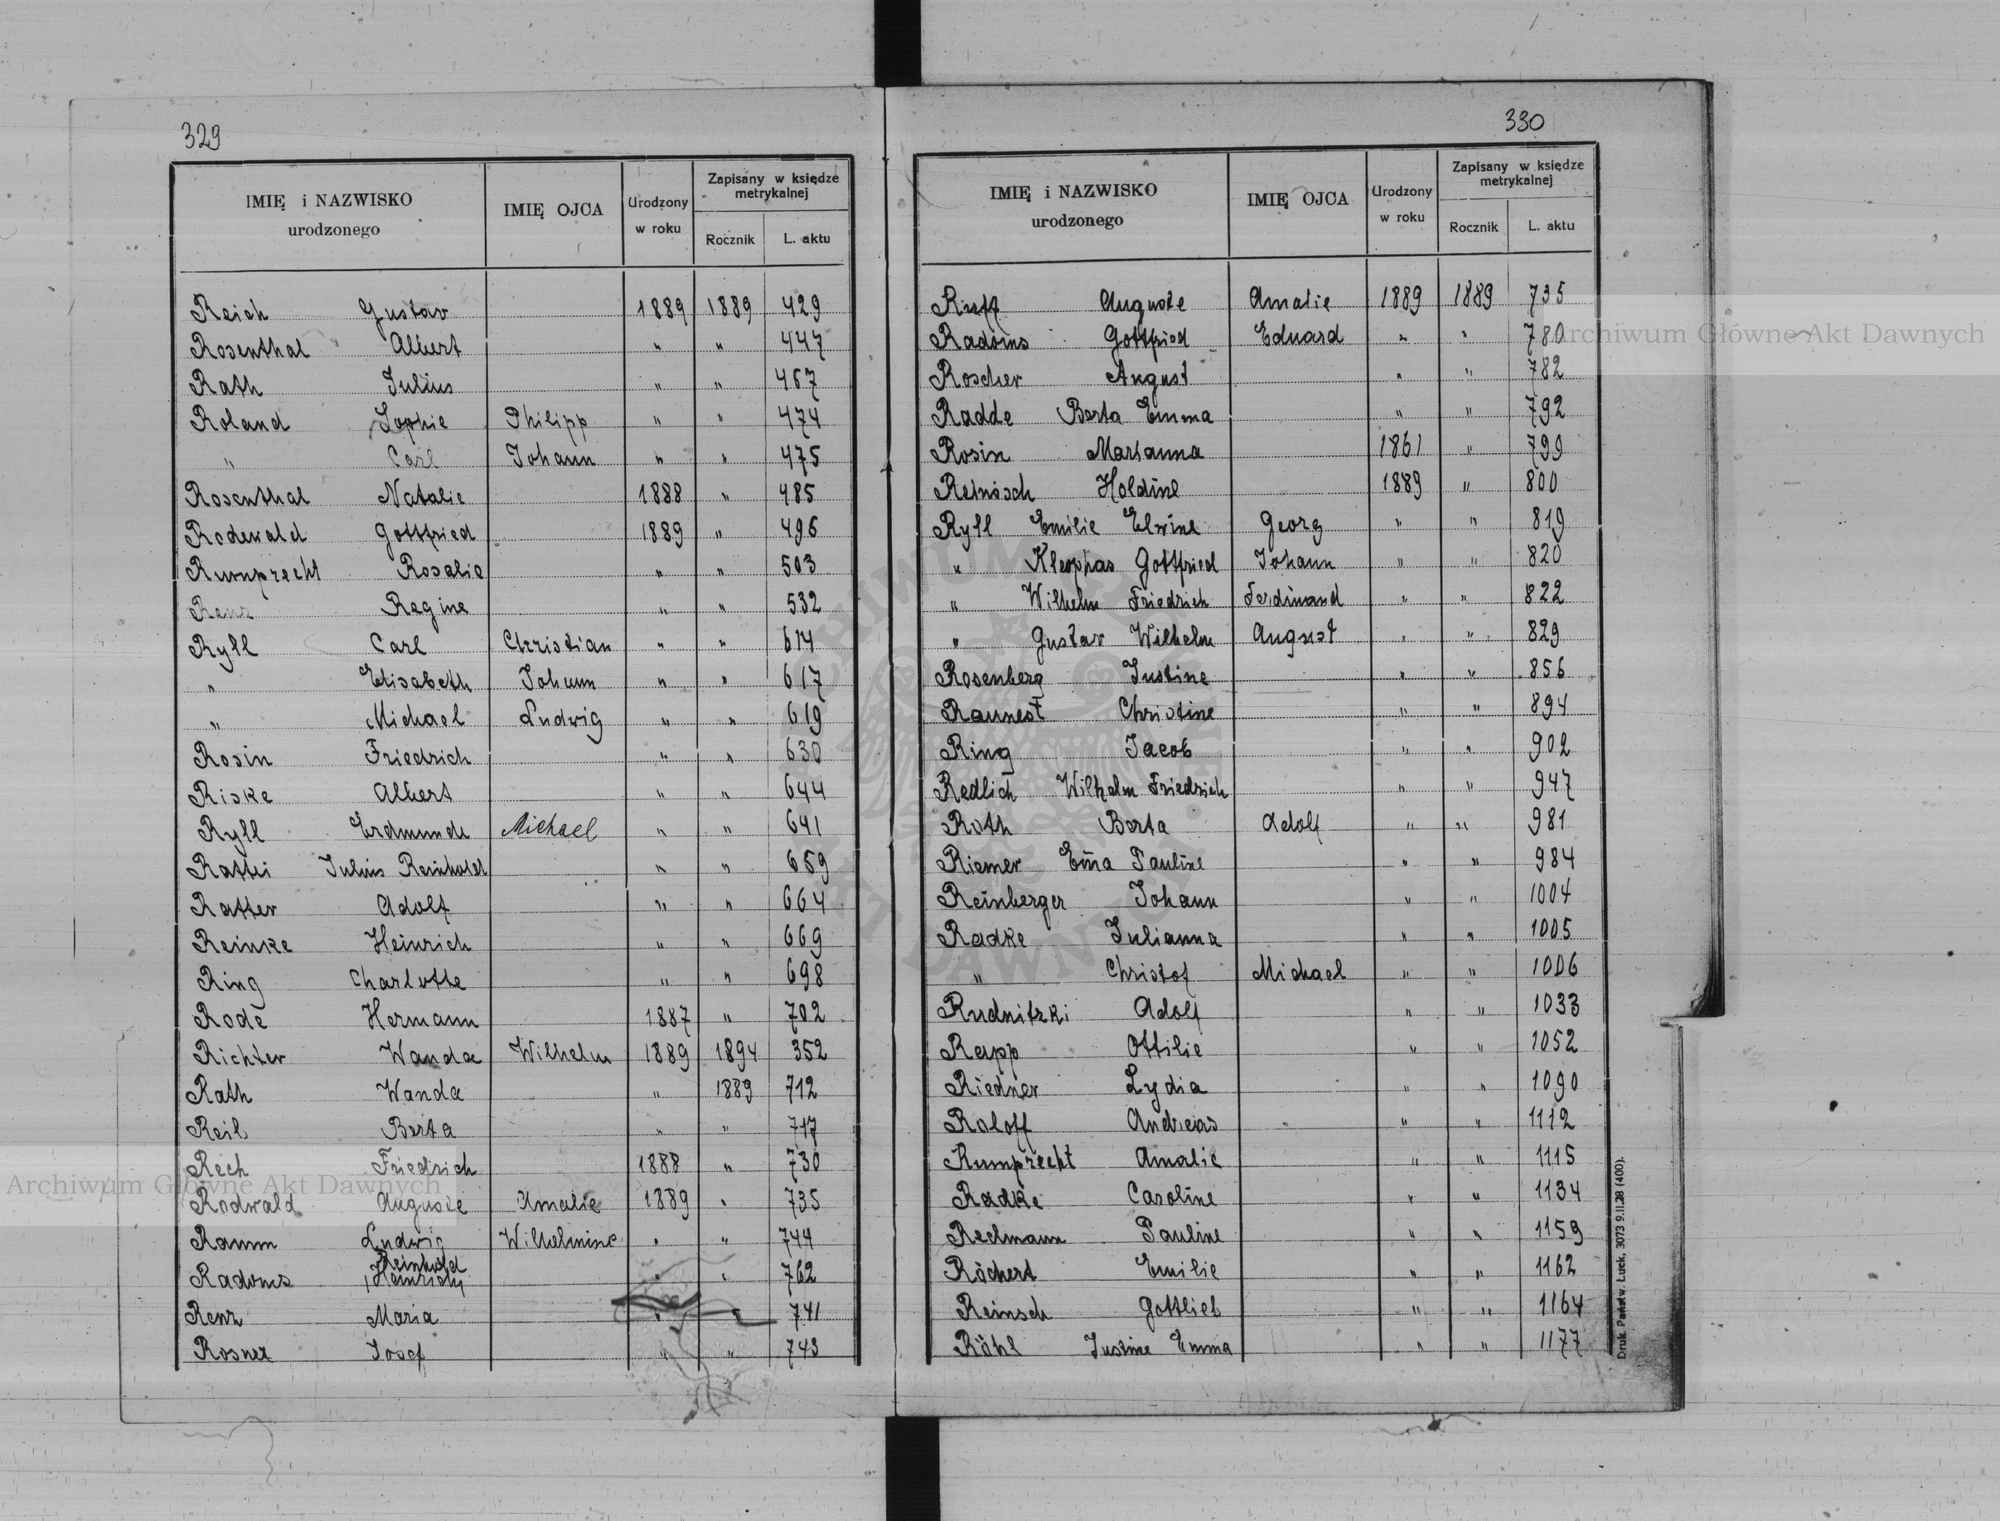 329
IMIĘ i NAZWISKO urodzonego IMIĘ OJCA Urodzony w roku Zapisany w księdze metrykalnej Rocznik L. aktu
Reich Gustav 1889 1889 429
Rosenthal Albert " " 447
Rath Julius " " 467
Roland Sophie Philipp " " 474
" Carl Johann " " 475
Rosenthal Natalie 1888 " 485
Rodewald Gottfried 1889 " 496
Rumprecht Rosalie " " 503
Renz Regine " " 532
Ryll Carl Christian " " 614
" Elisabeth Johann " " 617
" Michael Ludwig " " 619
Rosin Friedrich " " 630
Riske Albert " " 644
Ryll Erdmunde Michael " " 641
Julius Reinhold " " 659
Ratter Adolf " " 664
Reinke Heinrich " " 669
Ring Charlotte " " 698
Rode Hermann 1887 " 702
Richter Wanda Wilhelm 1889 1894 352
Rath Wanda " 1889 712
Reil Berta " " 717
Rech Friedrich 1888 " 730
Rodwald Auguste Amalie 1889 " 735
Ramm Ludwig Wilhelmine " " 744
Radoms Reinhold Heinrich " " 762
Renz Maria " 741
Rosner Josef " " 743
330
IMIĘ i NAZWISKO urodzonego IMIĘ OJCA Urodzony w roku Zapisany w księdze metrykalnej Rocznik L. aktu
Ruff Auguste Amalie 1889 1889 735
Radoms Gottfried Eduard " " 780
Roscher August " " 782
Radde Berta Emma " " 792
Rosin Marianna 1861 " 799
Reinisch Holdine 1889 " 800
Ryll Emilie Elwine Georg " " 819
" Kleophas Gottfried Johann " " 820
" Wilhelm Friedrich Ferdinand " " 822
" Gustav Wilhelm August " " 829
Rosenberg Justine " " 856
Raunest Christine " " 894
Ring Jacob " " 902
Redlich Wilhelm Friedrich " " 947
Roth Berta Adolf " " 981
Riemer Em̄a Pauline " " 984
Reinberger Johann " " 1004
Radke Julianna " " 1005
" Christof Michael " " 1006
Rudnitzki Adolf " " 1033
Rapp Ottilie " " 1052
Riedner Lydia " " 1090
Roloff Andreas " " 1112
Rumprecht Amalie " " 1115
Radke Caroline " " 1134
Redmann Pauline " " 1159
Röchert Emilie " " 1162
Reinsch Gottlieb " " 1164
Röhl Justine Emma " " 1177
Druk. Państw. Łuck, 3073 9.II.28 (400).
Archiwum Główne Akt Dawnych
Archiwum Główne Akt Dawnych
ARCHIWUM GŁÓWNE AKT DAWNYCH